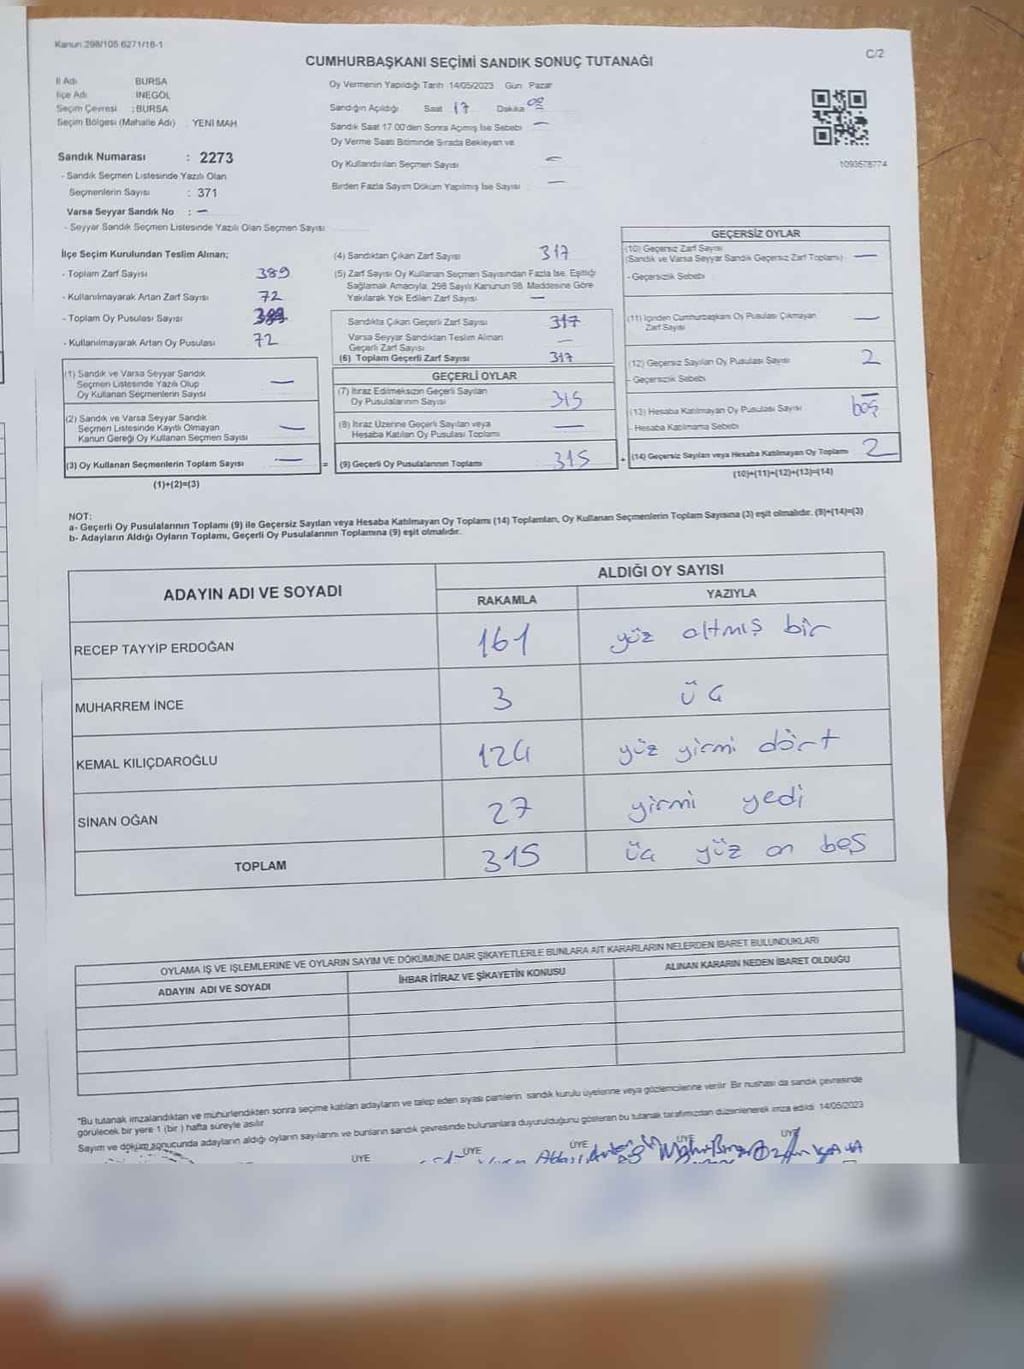 Kanun 298/105 6271/16-1
C/2
CUMHURBAŞKANI SEÇİMİ SANDIK SONUÇ TUTANAĞI
İl Adı BURSA
İlçe Adı İNEGÖL
Seçim Çevresi : BURSA
Seçim Bölgesi (Mahalle Adı) YENİ MAH
Sandık Numarası : 2273
- Sandık Seçmen Listesinde Yazılı Olan
Seçmenlerin Sayısı : 371
Varsa Seyyar Sandık No : —
- Seyyar Sandık Seçmen Listesinde Yazılı Olan Seçmen Sayısı
Oy Vermenin Yapıldığı Tarih 14/05/2023 Gün Pazar
Sandığın Açıldığı Saat 17 Dakika
Sandık Saat 17.00'den Sonra Açılmış İse Sebebi —
Oy Verme Saati Bitiminde Sırada Bekleyen ve
Oy Kullandırılan Seçmen Sayısı —
Birden Fazla Sayım Döküm Yapılmış İse Sayısı —
1093578774
İlçe Seçim Kurulundan Teslim Alınan;
- Toplam Zarf Sayısı 389
- Kullanılmayarak Artan Zarf Sayısı 72
- Toplam Oy Pusulası Sayısı 389
- Kullanılmayarak Artan Oy Pusulası 72
(1) Sandık ve Varsa Seyyar Sandık
Seçmen Listesinde Yazılı Olup
Oy Kullanan Seçmenlerin Sayısı —
(2) Sandık ve Varsa Seyyar Sandık
Seçmen Listesinde Kayıtlı Olmayan
Kanun Gereği Oy Kullanan Seçmen Sayısı —
(3) Oy Kullanan Seçmenlerin Toplam Sayısı —
(1)+(2)=(3)
(4) Sandıktan Çıkan Zarf Sayısı 317
(5) Zarf Sayısı Oy Kullanan Seçmen Sayısından Fazla İse, Eşitliği
Sağlamak Amacıyla, 298 Sayılı Kanunun 98. Maddesine Göre
Yakılarak Yok Edilen Zarf Sayısı —
Sandıkta Çıkan Geçerli Zarf Sayısı 317
Varsa Seyyar Sandıktan Teslim Alınan
Geçerli Zarf Sayısı —
(6) Toplam Geçerli Zarf Sayısı 317
GEÇERLİ OYLAR
(7) İtiraz Edilmeksizin Geçerli Sayılan
Oy Pusulalarının Sayısı 315
(8) İtiraz Üzerine Geçerli Sayılan veya
Hesaba Katılan Oy Pusulası Toplamı —
= (9) Geçerli Oy Pusulalarının Toplamı 315
GEÇERSİZ OYLAR
(10) Geçersiz Zarf Sayısı
(Sandık ve Varsa Seyyar Sandık Geçersiz Zarf Toplamı) —
- Geçersizlik Sebebi
(11) İçinden Cumhurbaşkanı Oy Pusulası Çıkmayan
Zarf Sayısı —
(12) Geçersiz Sayılan Oy Pusulası Sayısı 2
- Geçersizlik Sebebi
(13) Hesaba Katılmayan Oy Pusulası Sayısı —
- Hesaba Katılmama Sebebi boş
+ (14) Geçersiz Sayılan veya Hesaba Katılmayan Oy Toplamı 2
(10)+(11)+(12)+(13)=(14)
NOT:
a- Geçerli Oy Pusulalarının Toplamı (9) ile Geçersiz Sayılan veya Hesaba Katılmayan Oy Toplamı (14) Toplamları, Oy Kullanan Seçmenlerin Toplam Sayısına (3) eşit olmalıdır. (9)+(14)=(3)
b- Adayların Aldığı Oyların Toplamı, Geçerli Oy Pusulalarının Toplamına (9) eşit olmalıdır.
ADAYIN ADI VE SOYADI
ALDIĞI OY SAYISI
RAKAMLA YAZIYLA
RECEP TAYYİP ERDOĞAN 161 yüz altmış bir
MUHARREM İNCE 3 üç
KEMAL KILIÇDAROĞLU 124 yüz yirmi dört
SİNAN OĞAN 27 yirmi yedi
TOPLAM 315 üç yüz on beş
OYLAMA İŞ VE İŞLEMLERİNE VE OYLARIN SAYIM VE DÖKÜMÜNE DAİR ŞİKAYETLERLE BUNLARA AİT KARARLARIN NELERDEN İBARET BULUNDUKLARI
ADAYIN ADI VE SOYADI İHBAR İTİRAZ VE ŞİKAYETİN KONUSU ALINAN KARARIN NEDEN İBARET OLDUĞU
"Bu tutanak imzalandıktan ve mühürlendikten sonra seçime katılan adayların ve talep eden siyasi partilerin sandık kurulu üyelerine veya gözlemcilerine verilir. Bir nüshası da sandık çevresinde
görülecek bir yere 1 (bir) hafta süreyle asılır
Sayım ve döküm sonucunda adayların aldığı oyların sayılarını ve bunların sandık çevresinde bulunanlara duyurulduğunu gösteren bu tutanak tarafımızdan düzenlenerek imza edildi. 14/05/2023
ÜYE ÜYE ÜYE ÜYE ÜYE